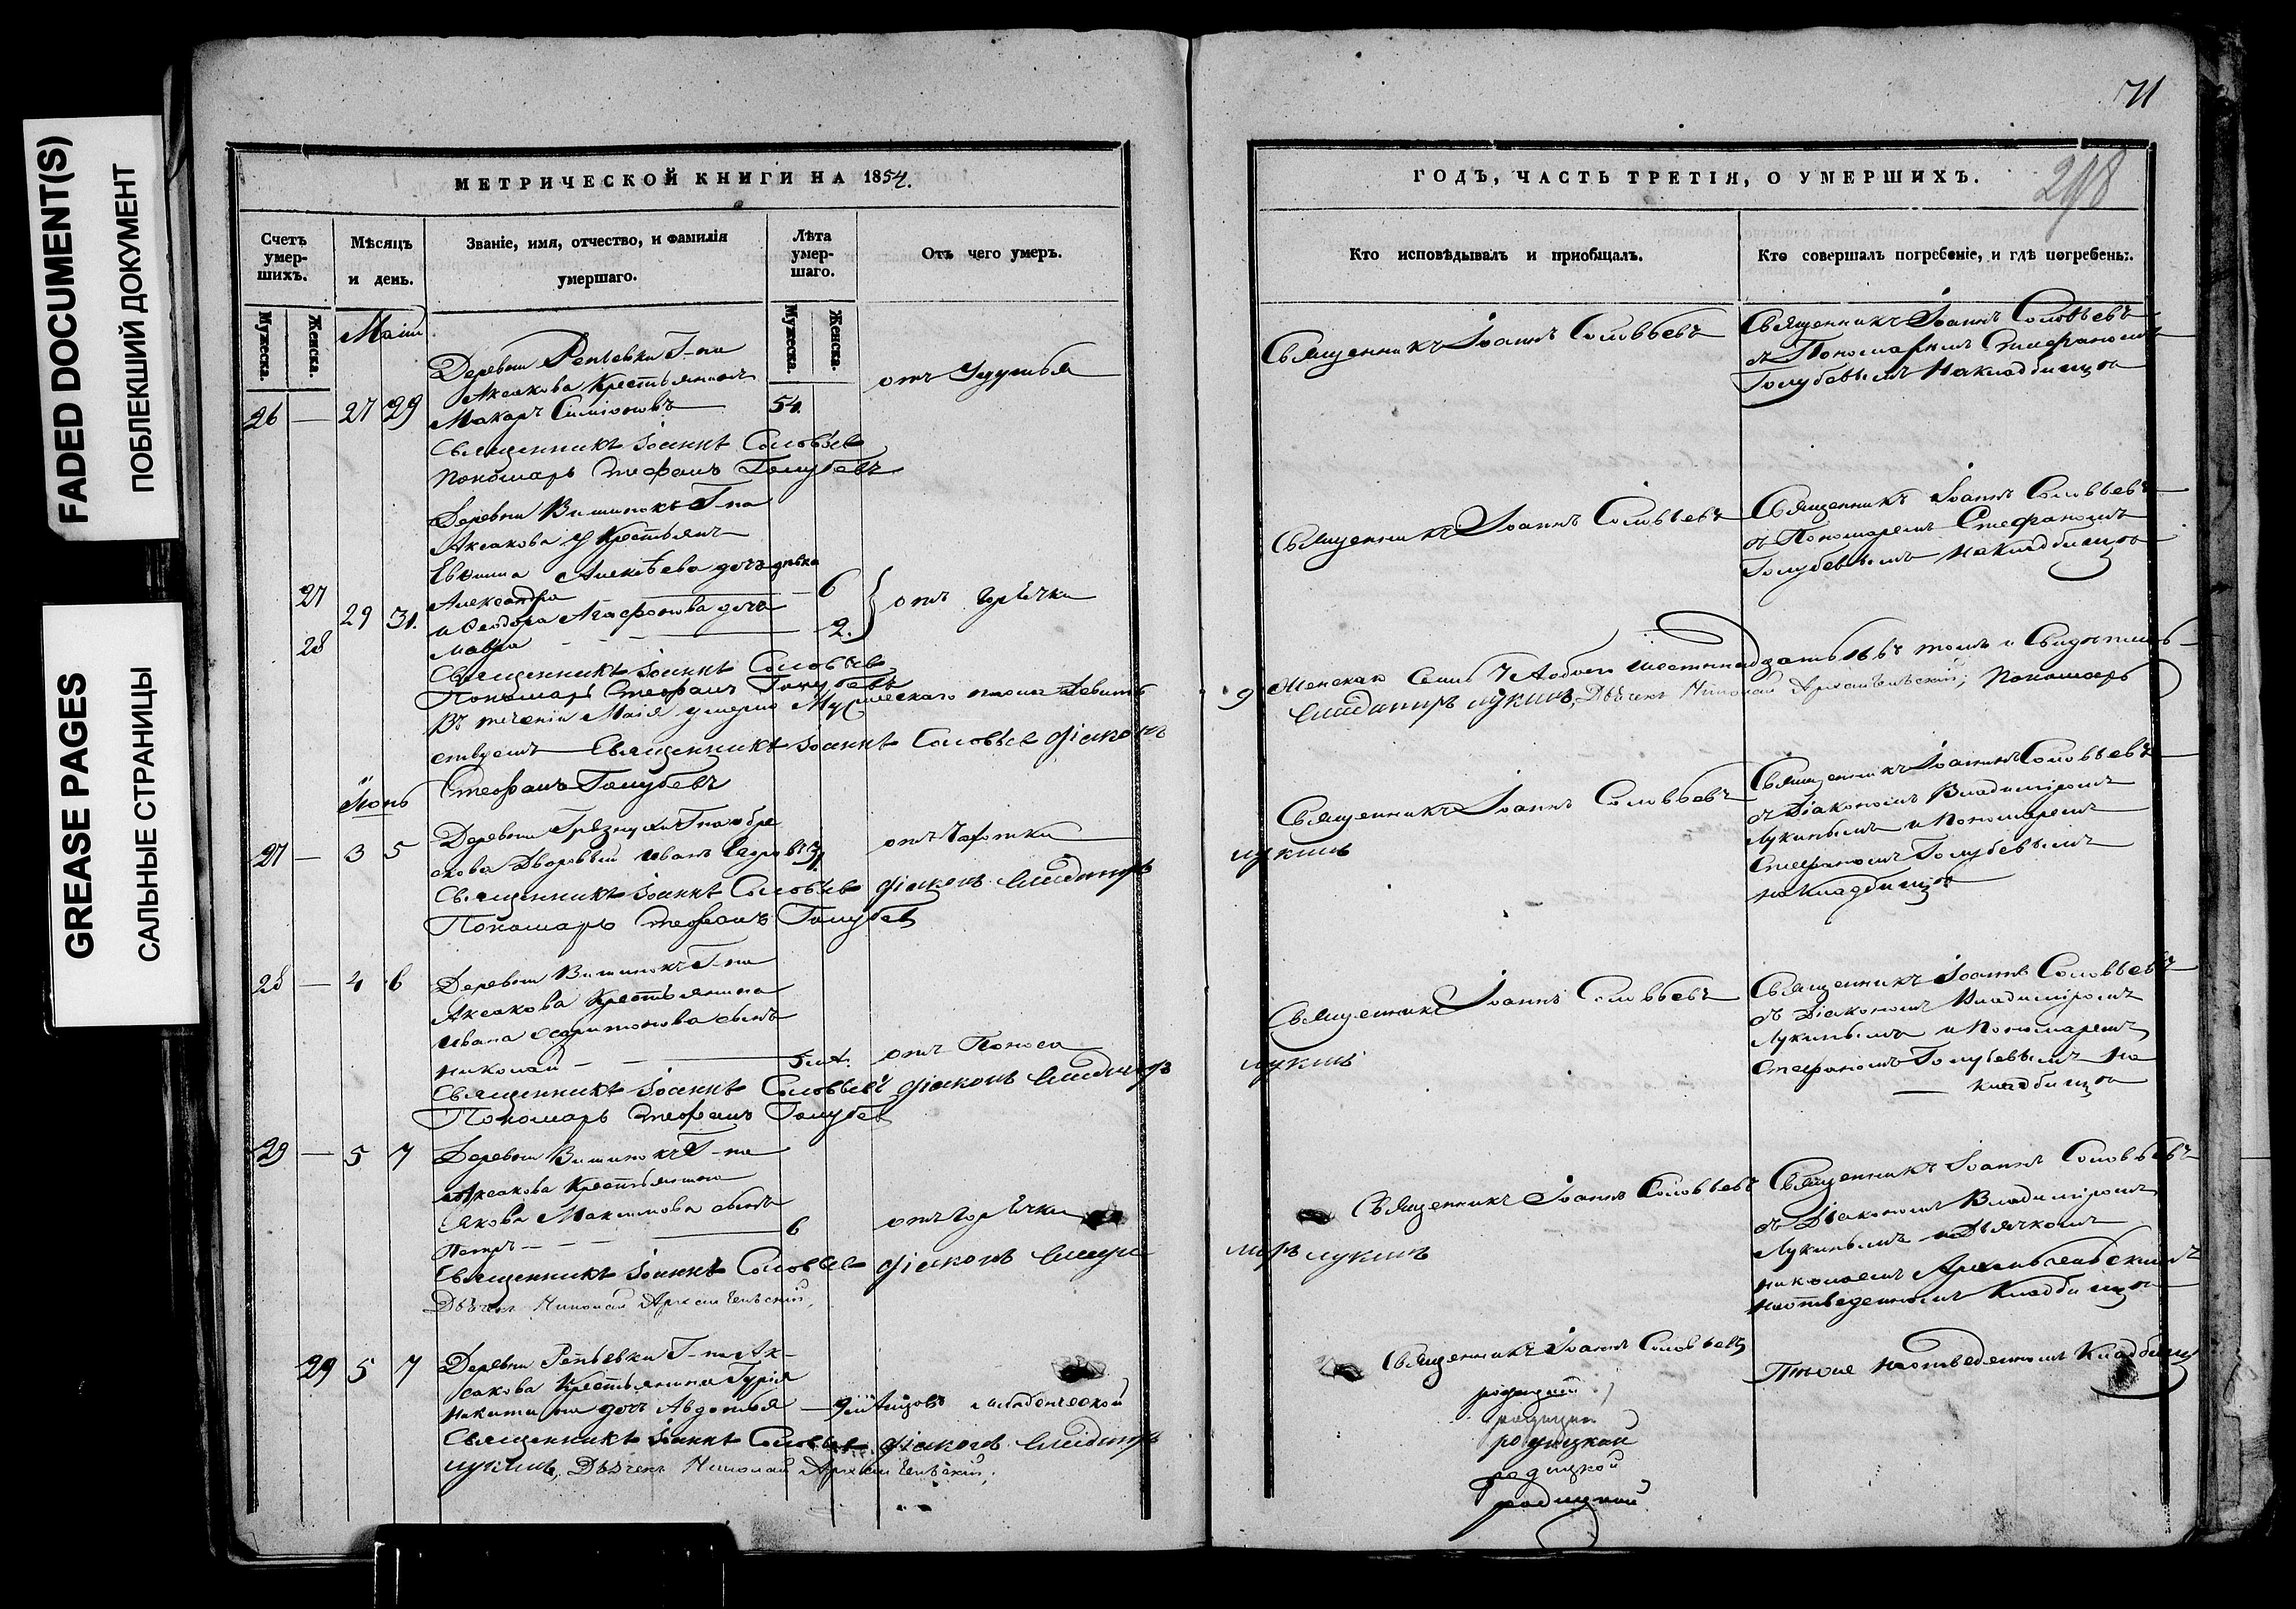 FADED DOCUMENT(S)
ПОБЛЕКШИЙ ДОКУМЕНТ
GREASE PAGES
САЛЬНЫЕ СТРАНИЦЫ
МЕТРИЧЕСКОЙ КНИГИ НА 1854.
Счетъ умер-шихъ.
Мѣсяцъ и день.
Званіе, имя, отчество, и фамилія умершаго.
Лѣта умер-шаго.
Отъ чего умеръ.
Мужеска.
Женска.
Мужеска.
Женска.
Маія
Деревни Репьевки Г-на
Аксакова Крестьянинъ
26 — 27 29 Макаръ Симіоновъ 54.
отъ Удушья
Священникъ Іоаннъ Соловьев
Пономарь Стефанъ Голубевъ
Деревни Вишинокъ Г-на
Аксакова у Крестьянъ
Евѳима Алексѣева дочь
27 Александра — 6
29 31. и Ѳеодора Агафонова дочь
28 Мавра — 2.
отъ Горячки
Священникъ Іоаннъ Соловьев
Пономарь Стефанъ Голубевъ
Въ теченіи Маія умерло Мужескаго пола девять
ствуемъ Священникъ Іоаннъ Соловьев Діаконъ
Стефанъ Голубевъ
Іюнь
Деревни Грязнухи Г-на
27 — 3 5 Дворовый Иванъ 31.
отъ Чахотки
Священникъ Іоаннъ Соловьев Діаконъ Владимиръ
Пономарь Стефанъ Голубев
28 — 4 6 Деревни Вишинокъ Г-на
Аксакова Крестьянина
Ивана Харитонова сынъ
Николай — 5 лѣт. отъ Поноса
Священникъ Іоаннъ Соловьевъ Діаконъ Владимиръ
Пономарь Стефанъ Голубев
29 — 5 7 Деревни Вишинокъ Г-на
Аксакова Крестьянина
Якова Максимова сынъ
Петръ — 6 отъ Горячки
Священникъ Іоаннъ Соловьев Діаконъ Влади
Дьячекъ Николай Архангельскій,
29 5 7 Деревни Репьевки Г-на Ак-
сакова Крестьянина Гурія
Никитина дочь Авдотья — 9 мѣсяцовъ младенческой
Священникъ Іоаннъ Соловьев Діаконъ Владимиръ
Лукинъ, Дьячекъ Николай Архангельскій,
71
ГОДЪ, ЧАСТЬ ТРЕТІЯ, О УМЕРШИХЪ.
Кто исповѣдывалъ и пріобщалъ.
Кто совершалъ погребеніе, и гдѣ погребены.
Священникъ Іоаннъ Соловьевъ
Священникъ Іоаннъ Соловьевъ
съ Пономаремъ Стефаномъ
Голубевымъ на кладбищѣ
Священникъ Іоаннъ Соловьевъ
Священникъ Іоаннъ Соловьевъ
съ Пономаремъ Стефаномъ
Голубевымъ на кладбищѣ
9 Женскаго Семь 7 А обоего шестнадцать 16 въ томъ и Свидѣтель-
Владимиръ Лукинъ, Дьячекъ Николай Архангельскій, Пономарь
Священникъ Іоаннъ Соловьевъ
Священникъ Іоаннъ Соловьевъ
съ Діакономъ Владиміромъ
Лукинымъ и Пономаремъ
Стефаномъ Голубевымъ
на кладбищѣ
Лукинъ
Священникъ Іоаннъ Соловьевъ
Священникъ Іоаннъ Соловьевъ
съ Діакономъ Владиміромъ
Лукинымъ и Пономаремъ
Стефаномъ Голубевымъ на
кладбищѣ
Лукинъ
Священникъ Іоаннъ Соловьевъ
Священникъ Іоаннъ Соловьевъ
съ Діакономъ Владиміромъ
Лукинымъ и Дьячкомъ
Николаемъ Архангельскимъ
на отведенномъ Кладбищѣ
миръ Лукинъ
Священникъ Іоаннъ Соловьевъ
Тѣ же на отведенномъ Кладбищѣ